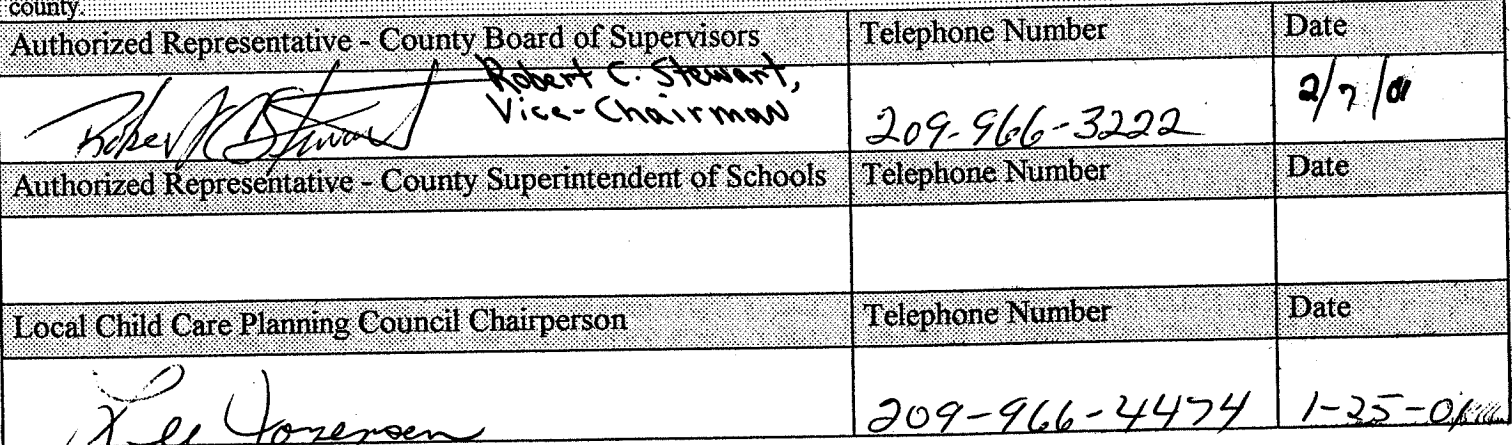 county.
Authorized Representative - County Board of Supervisors Telephone Number Date
Robert C. Stewart,
Vice-Chairman
Robert C Stewart 209-966-3222 2/7/01
Authorized Representative - County Superintendent of Schools Telephone Number Date
Local Child Care Planning Council Chairperson Telephone Number Date
Lee 209-966-4474 1-25-01